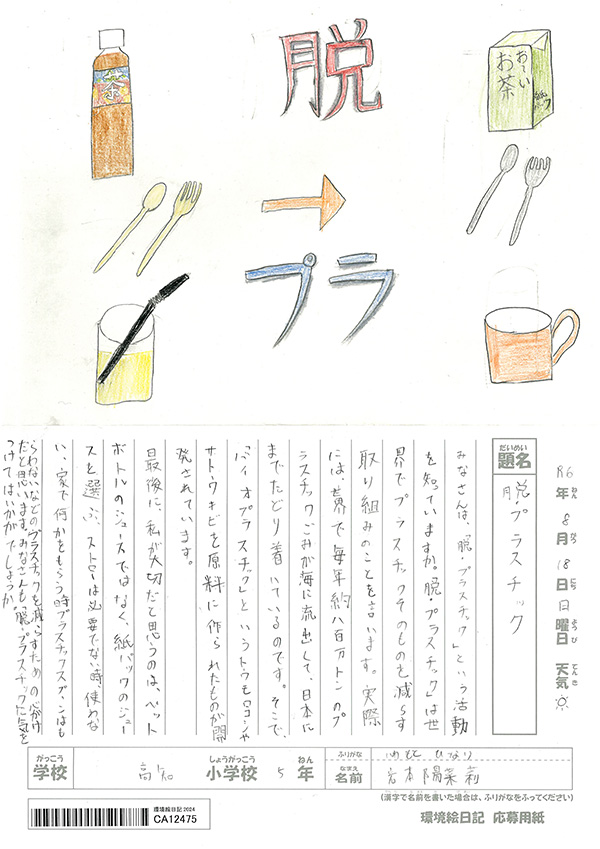 茶
脱
→
プラ
お~いお茶
紙パック
R6年8月18日日曜日 天気
ねん
がつ
にち
ようび
てんき
だいめい
題名
脱プラスチック
みなさんは、「脱・プラスチック」という活動
を知っていますか。脱・プラスチックは世
界でプラスチックそのものを減らす
取り組みのことを言います。実際
には世界で毎年約八百万トンのプ
ラスチックごみが海に流出して、日本に
までたどり着いているのです。そこで、
「バイオプラスチック」というトウモロコシや
サトウキビを原料に作られたものが開
発されています。
最後に、私が大切だと思うのは、ペット
ボトルのジュースではなく、紙パックのジュー
スを選ぶ、ストローは必要でない時、使わな
い、家で何かをもらう時プラスチックスプーンはも
らわないなどのプラスチックを減らすための心がけ
だと思います。みなさんも「脱・プラスチック」に気を
つけてはいかがでしょうか。
がっこう
学校
高知
しょうがっこう
小学校
5
ねん
年
ふりがな
いわもと ひなり
なまえ
名前
岩本陽菜莉
(漢字で名前を書いた場合は、ふりがなをふってください)
環境絵日記 2024
CA12475
環境絵日記 応募用紙